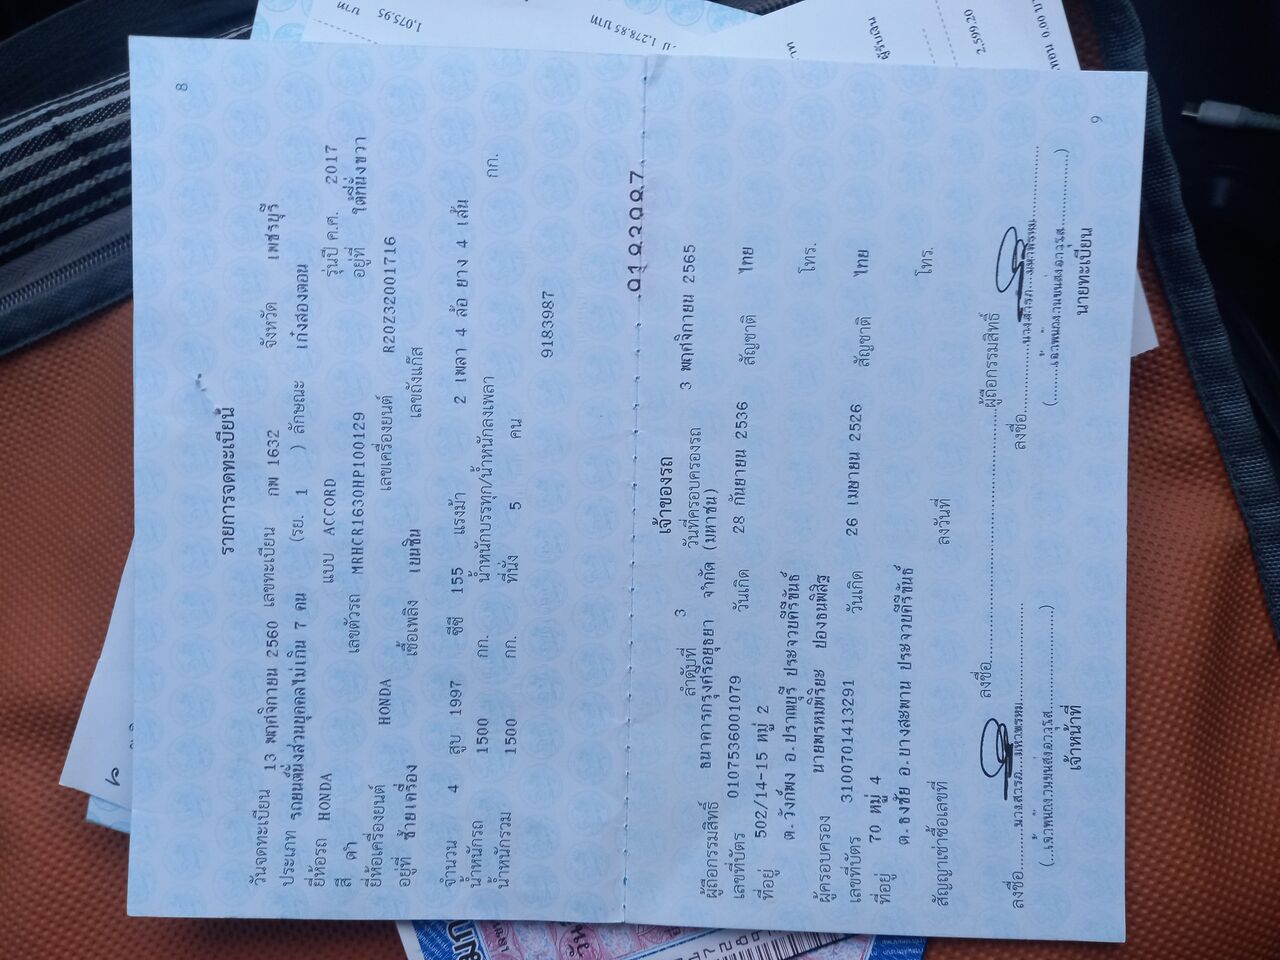 8
รายการจดทะเบียน
วันจดทะเบียน 13 พฤศจิกายน 2560 เลขทะเบียน กพ 1632 จังหวัด เพชรบุรี
ประเภท รถยนต์นั่งส่วนบุคคลไม่เกิน 7 คน (รย. 1 ) ลักษณะ เก๋งสองตอน
ยี่ห้อรถ HONDA แบบ ACCORD รุ่นปี ค.ศ. 2017
สี ดำ เลขตัวรถ MRHCR1630HP100129 อยู่ที่ ใต้ที่นั่งขวา
ยี่ห้อเครื่องยนต์ HONDA เลขเครื่องยนต์ R20Z32001716
อยู่ที่ ซ้ายเครื่อง เชื้อเพลิง เบนซิน เลขถังแก๊ส
จำนวน 4 สูบ 1997 ซีซี 155 แรงม้า 2 เพลา 4 ล้อ ยาง 4 เส้น
น้ำหนักรถ 1500 กก. น้ำหนักบรรทุก/น้ำหนักลงเพลา กก.
น้ำหนักรวม 1500 กก. ที่นั่ง 5 คน
9183987
เจ้าของรถ
ลำดับที่ 3 วันที่ครอบครองรถ 3 พฤศจิกายน 2565
ผู้ถือกรรมสิทธิ์ ธนาคารกรุงศรีอยุธยา จำกัด (มหาชน)
เลขที่บัตร 0107536001079 วันเกิด 28 กันยายน 2536 สัญชาติ ไทย
ที่อยู่ 502/14-15 หมู่ 2
ต.วังก์พง อ.ปราณบุรี ประจวบคีรีขันธ์ โทร.
ผู้ครอบครอง นายพรหมพิริยะ ปองธนพิสิฐ
เลขที่บัตร 3100701413291 วันเกิด 26 เมษายน 2526 สัญชาติ ไทย
ที่อยู่ 70 หมู่ 4
ต.ธงชัย อ.บางสะพาน ประจวบคีรีขันธ์ โทร.
สัญญาเช่าซื้อเลขที่ ลงวันที่
ลงชื่อ ผู้ถือกรรมสิทธิ์
ลงชื่อ ลงชื่อ
เจ้าหน้าที่ นายทะเบียน
9
1,075.95 บาท
1,278.85 บาท
ผู้รับเงิน
2,599.20
0.00